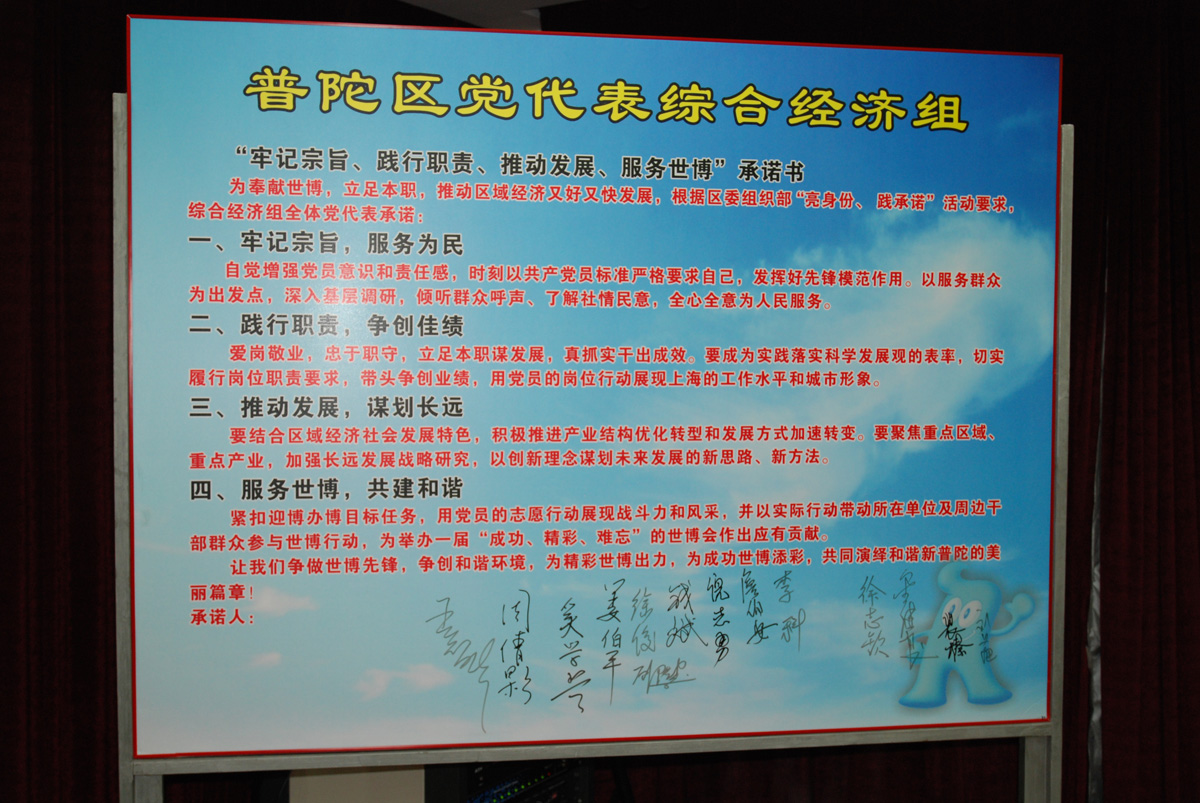 普陀区党代表综合经济组
“牢记宗旨、践行职责、推动发展、服务世博”承诺书
为奉献世博，立足本职，推动区域经济又好又快发展，根据区委组织部“亮身份、践承诺”活动要求，
综合经济组全体党代表承诺：
一、牢记宗旨，服务为民
自觉增强党员意识和责任感，时刻以共产党员标准严格要求自己，发挥好先锋模范作用。以服务群众
为出发点，深入基层调研，倾听群众呼声、了解社情民意，全心全意为人民服务。
二、践行职责，争创佳绩
爱岗敬业，忠于职守，立足本职谋发展，真抓实干出成效。要成为实践落实科学发展观的表率，切实
履行岗位职责要求，带头争创业绩，用党员的岗位行动展现上海的工作水平和城市形象。
三、推动发展，谋划长远
要结合区域经济社会发展特色，积极推进产业结构优化转型和发展方式加速转变。要聚焦重点区域、
重点产业，加强长远发展战略研究，以创新理念谋划未来发展的新思路、新方法。
四、服务世博，共建和谐
紧扣迎博办博目标任务，用党员的志愿行动展现战斗力和风采，并以实际行动带动所在单位及周边干
部群众参与世博行动，为举办一届“成功、精彩、难忘”的世博会作出应有贡献。
让我们争做世博先锋，争创和谐环境，为精彩世博出力，为成功世博添彩，共同演绎和谐新普陀的美
丽篇章！
承诺人：
姜伯平
倪志勇
李科
徐志钦